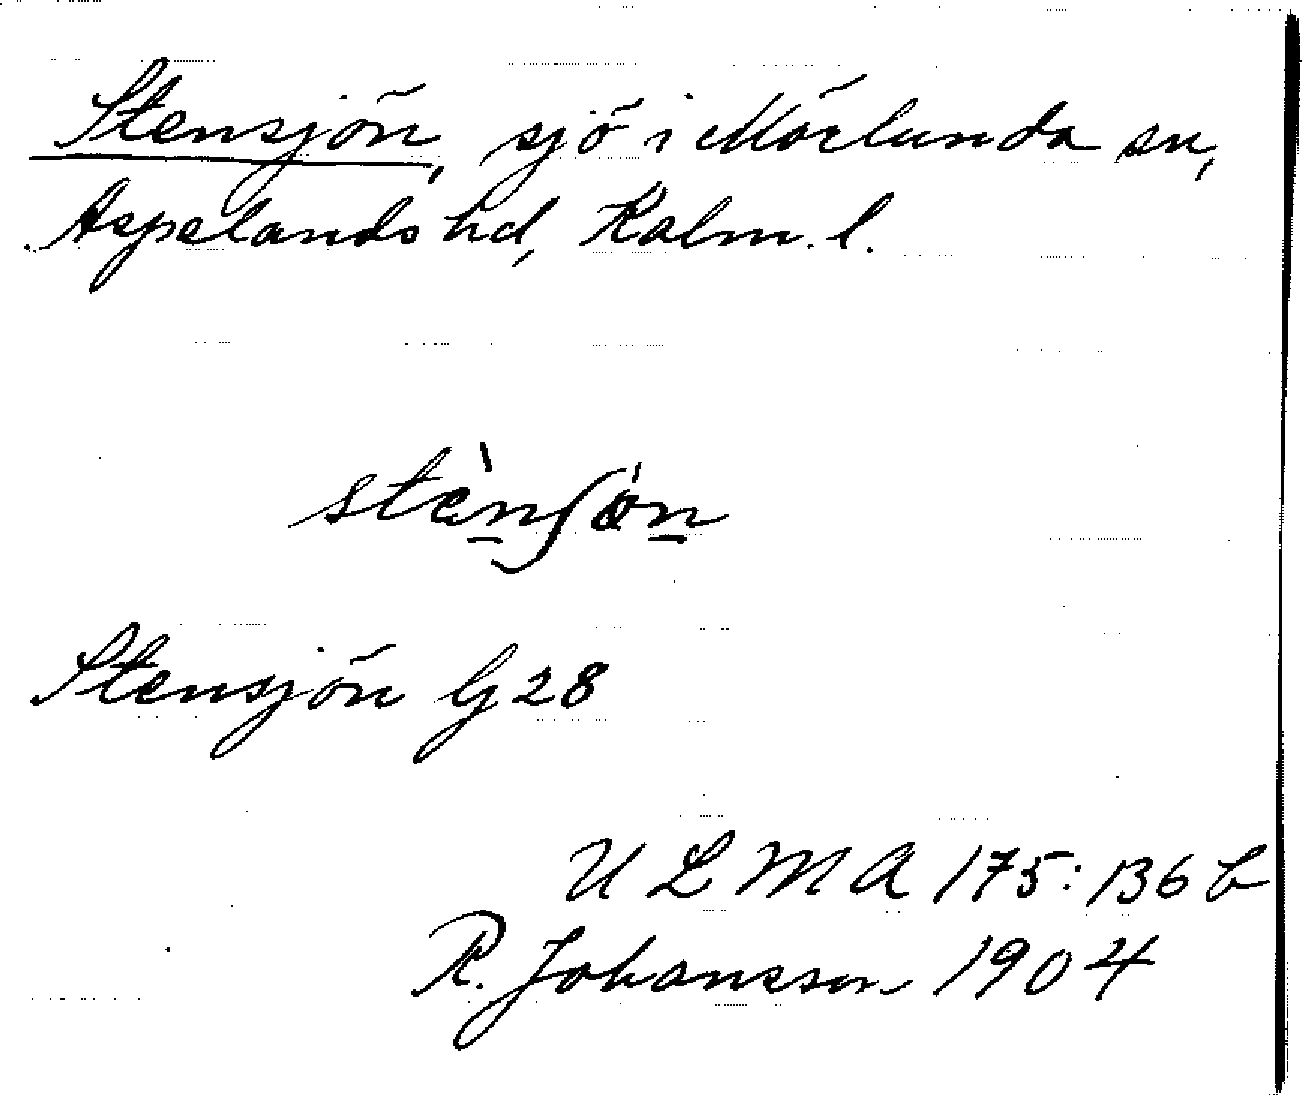 Stensjön, sjö i Mörlunda sn,
Aspelands hd, Kalm. l.
stènʃön
Stensjön G 28
ULMA 175:136 b
R. Johansson 1904